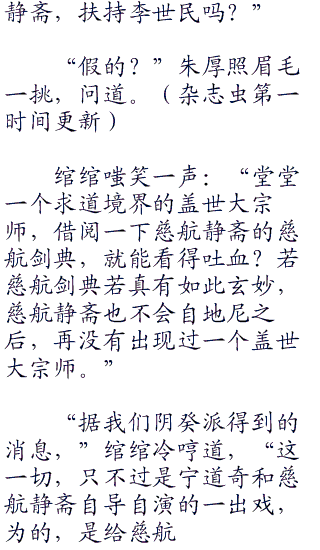 静斋，扶持李世民吗？”
“假的？”朱厚照眉毛
一挑，问道。（杂志虫第一
时间更新）
绾绾嗤笑一声：“堂堂
一个求道境界的盖世大宗
师，借阅一下慈航静斋的慈
航剑典，就能看得吐血？若
慈航剑典若真有如此玄妙，
慈航静斋也不会自地尼之
后，再没有出现过一个盖世
大宗师。”
“据我们阴癸派得到的
消息，”绾绾冷哼道，“这
一切，只不过是宁道奇和慈
航静斋自导自演的一出戏，
为的，是给慈航